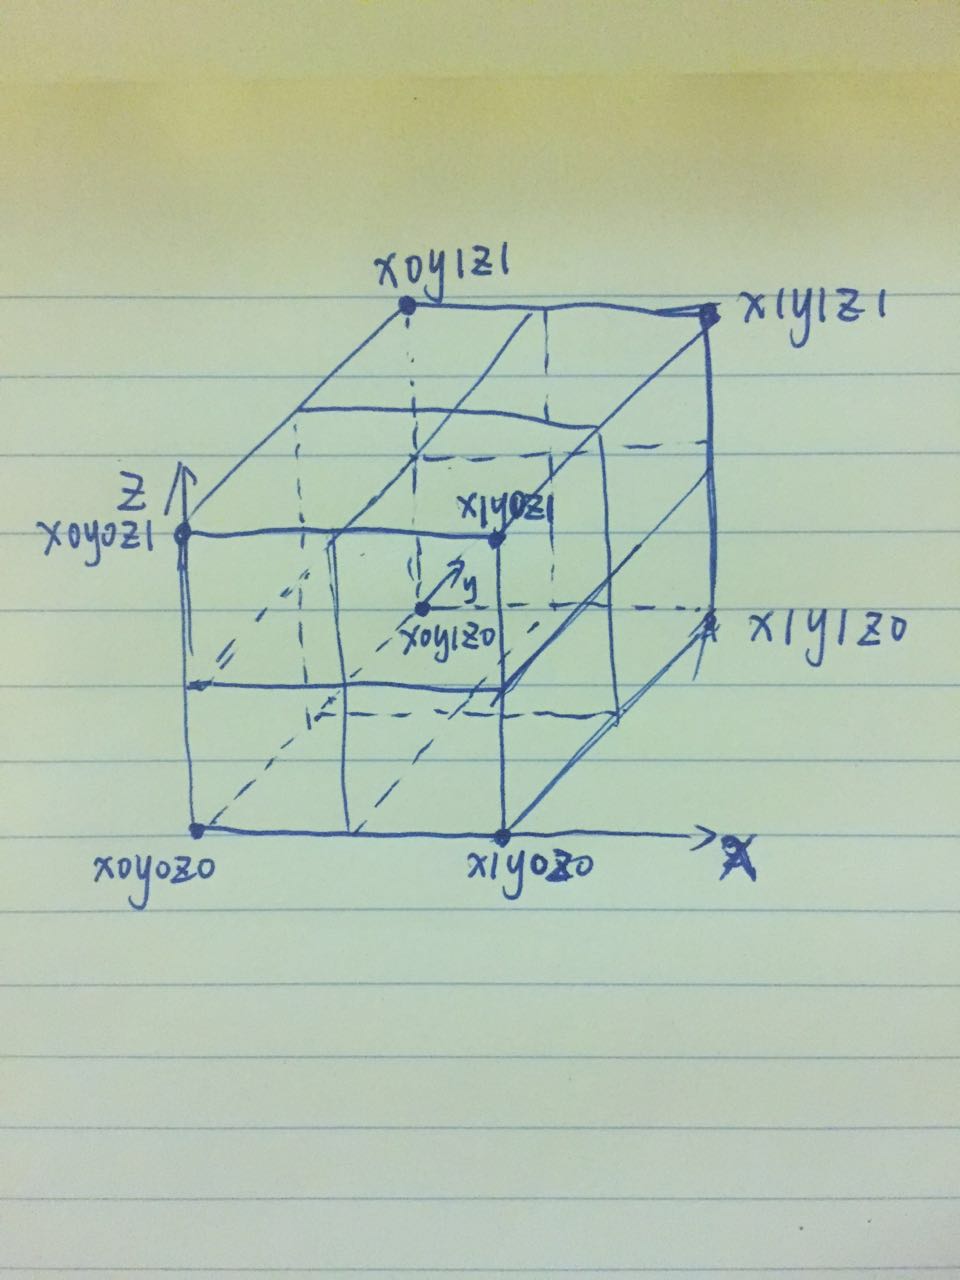 x0y1z1
x1y1z1
z
x0y0z1
x1y0z1
y
x0y1z0
x1y1z0
x0y0z0
x1y0z0
x